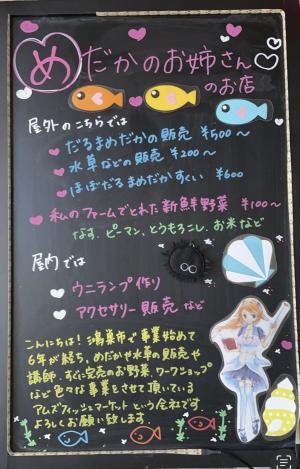 めだかのお姉さん
のお店
屋外のこちらでは
だるまめだかの販売 ¥500〜
水草などの販売 ¥200〜
ほぼだるまめだかすくい ¥600
私のファームでとれた新鮮野菜 ¥100〜
なす、ピーマン、とうもろこし、お米など
屋内では
ウニランプ作り
アクセサリー販売など
こんにちは！鴻巣市で事業始めて
6年が経ち、めだかや水草の販売や
講師、すぐに完売のお野菜、ワークショップ
など色々な事業をさせて頂いている
アムズフィッシュマーケットという会社です
よろしくお願い致します